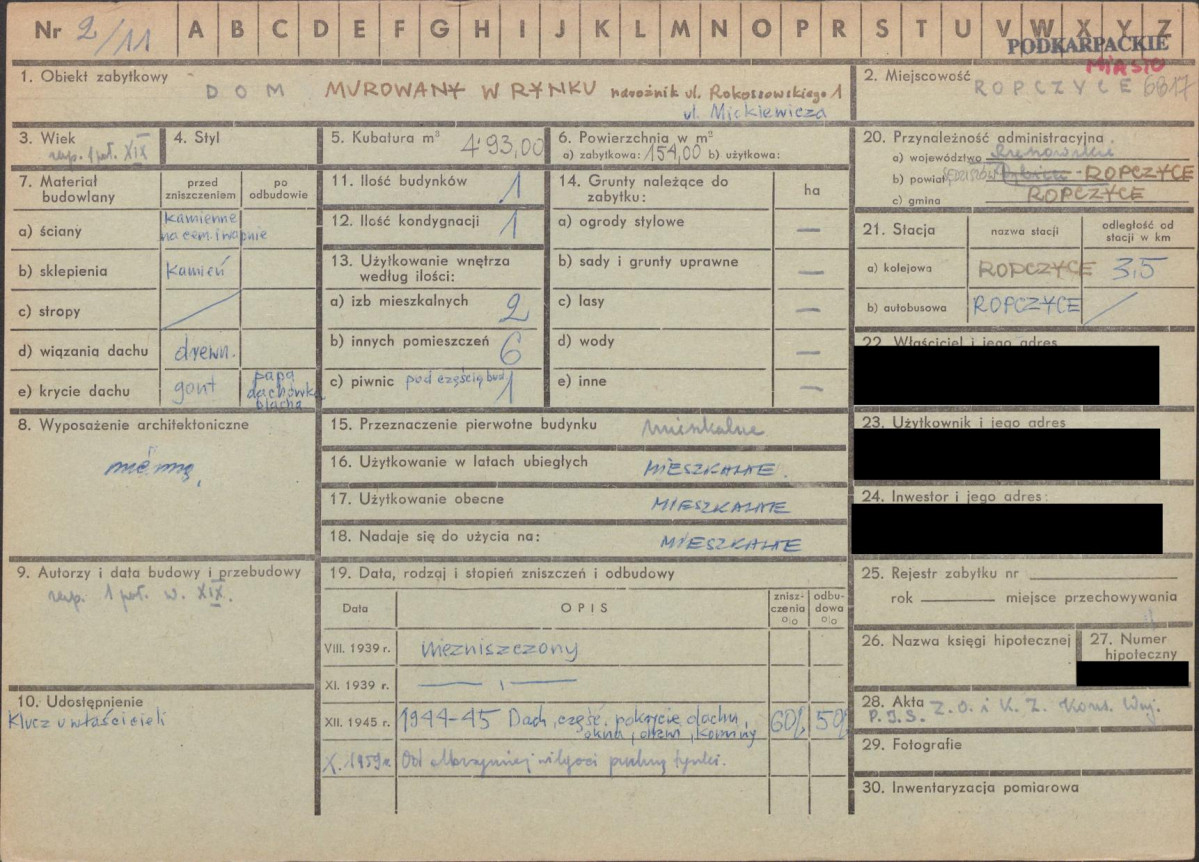 Nr 2/11 A B C D E F G H I J K L M N O P R S T U V W X Y Z
PODKARPACKIE
MIASTO
1. Obiekt zabytkowy
DOM MUROWANY W RYNKU narożnik ul. Rokoszowskiego 1
ul. Mickiewicza
2. Miejscowość
ROPCZYCE 6817
3. Wiek
1 poł. XIX
4. Styl
5. Kubatura m³ 493,00
6. Powierzchnia w m²
a) zabytkowa: 154,00 b) użytkowa:
20. Przynależność administracyjna
a) województwo Rzeszowskie
b) powiat ROPCZYCE
c) gmina ROPCZYCE
7. Materiał budowlany
przed zniszczeniem
po odbudowie
a) ściany kamienne
na cem. i wapnie
b) sklepienia kamień
c) stropy /
d) wiązania dachu drewn.
e) krycie dachu gont papa
dachówka
blacha
11. Ilość budynków 1
12. Ilość kondygnacji 1
13. Użytkowanie wnętrza
według ilości:
a) izb mieszkalnych 2
b) innych pomieszczeń 6
c) piwnic pod częścią bud. 1
14. Grunty należące do
zabytku:
ha
a) ogrody stylowe —
b) sady i grunty uprawne —
c) lasy —
d) wody —
e) inne —
21. Stacja
nazwa stacji
odległość od
stacji w km
a) kolejowa ROPCZYCE 3,5
b) autobusowa ROPCZYCE /
22. Właściciel i jego adres
23. Użytkownik i jego adres
24. Inwestor i jego adres:
8. Wyposażenie architektoniczne
nie ma,
15. Przeznaczenie pierwotne budynku mieszkalne
16. Użytkowanie w latach ubiegłych MIESZKALNE.
17. Użytkowanie obecne MIESZKALNE
18. Nadaje się do użycia na: MIESZKALNE
9. Autorzy i data budowy i przebudowy
1 poł. w. XIX.
10. Udostępnienie
Klucz u właścicieli
19. Data, rodzaj i stopień zniszczeń i odbudowy
Data
OPIS
znisz-
czenia
%
odbu-
dowa
%
VIII. 1939 r. Niezniszczony
XI. 1939 r. — , —
XII. 1945 r. 1944-45 Dach, część. pokrycie dachu, 60% 50%
okna, drzwi, kominy
X. 1959 r. Od wilgoci tynki.
25. Rejestr zabytku nr
rok miejsce przechowywania
26. Nazwa księgi hipotecznej
27. Numer
hipoteczny
28. Akta Z. O. i K. Z. Kons. Woj.
P.I.S.
29. Fotografie
30. Inwentaryzacja pomiarowa